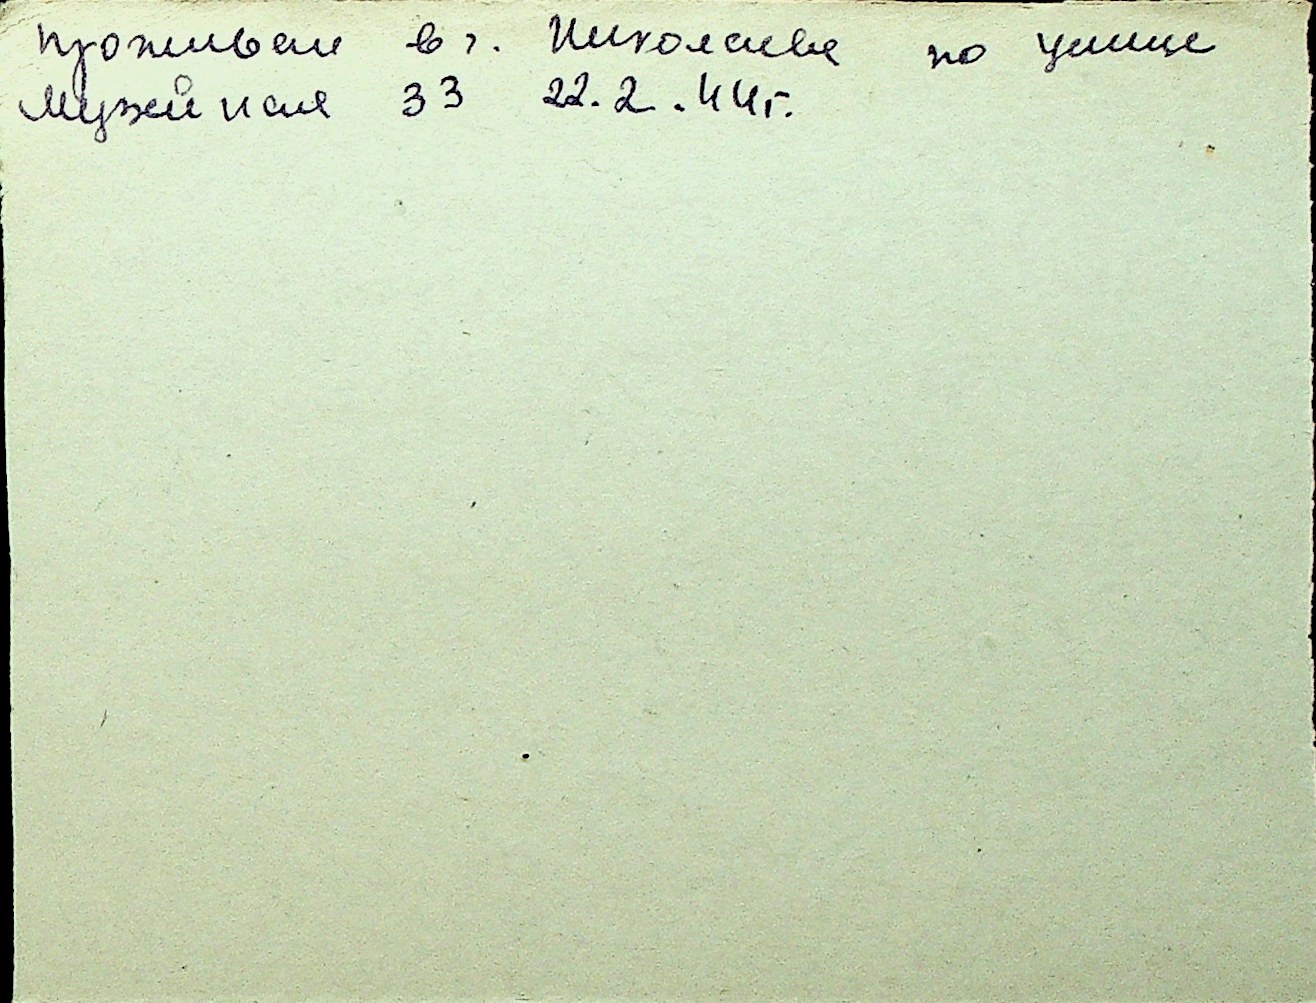 проживал в г. Николаеве по улице
Музейная 33 22.2.44г.